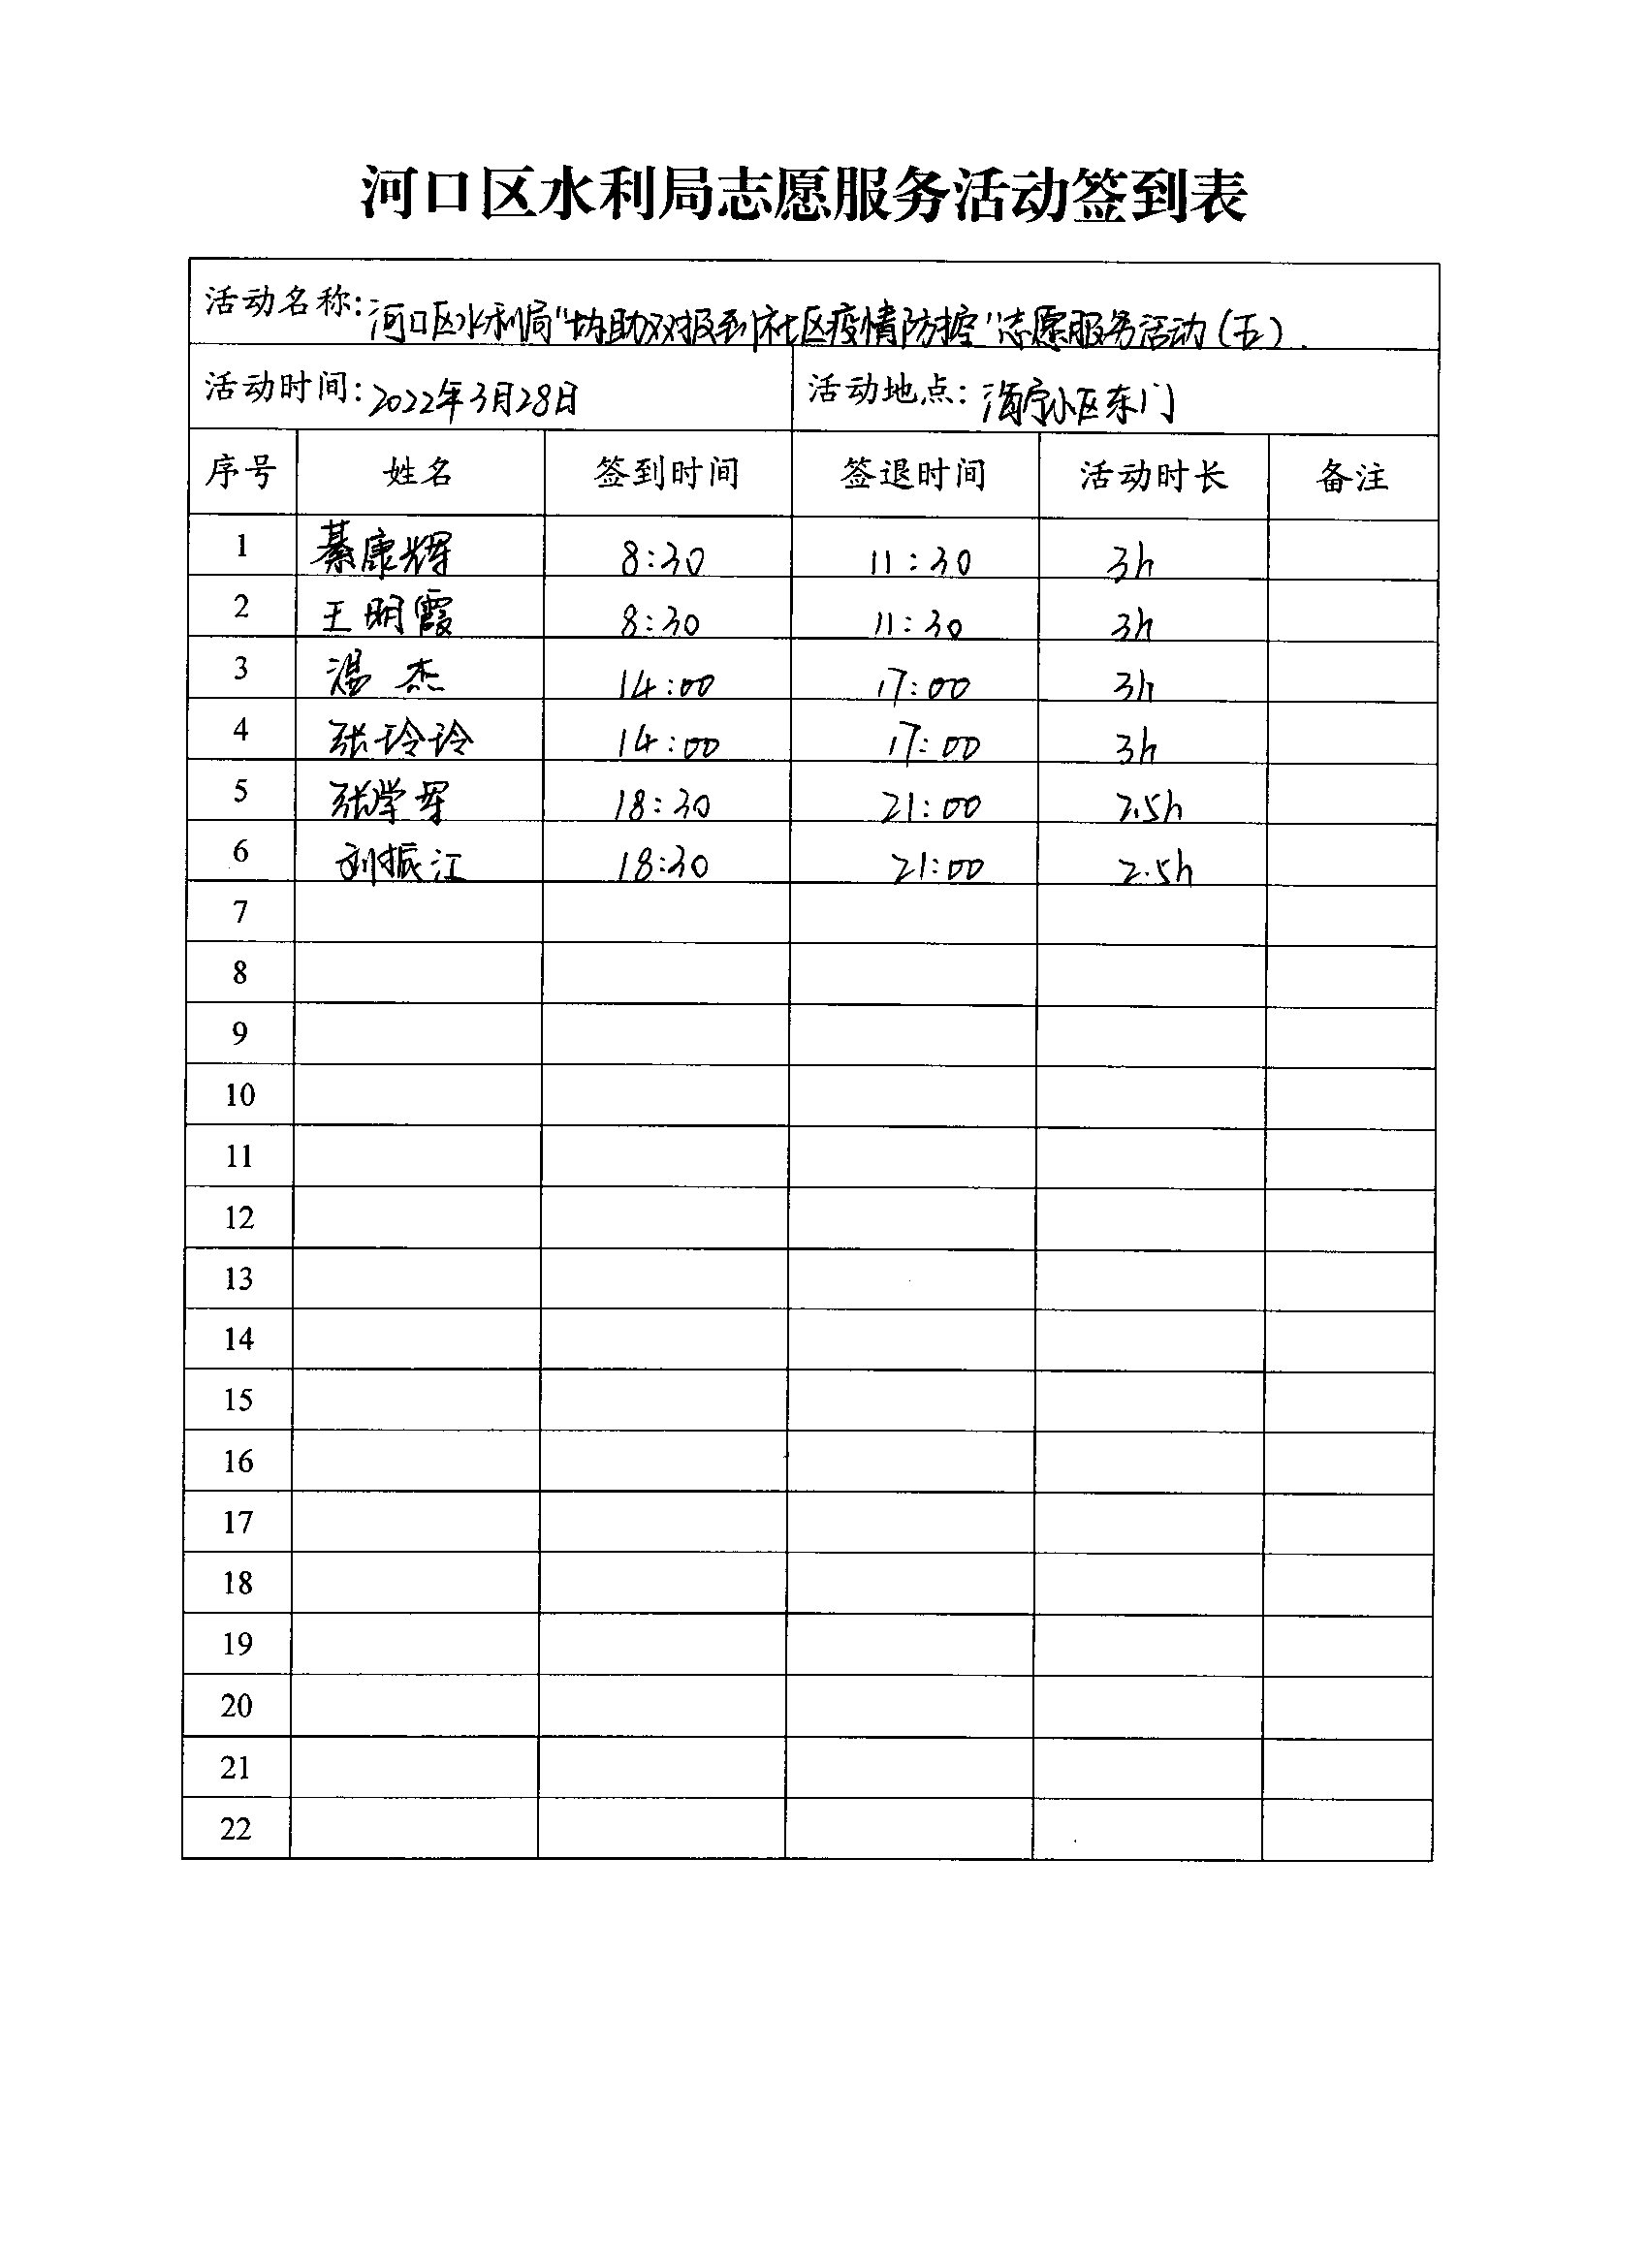 河口区水利局志愿服务活动签到表
活动名称:河口区水利局"协助双报到社区疫情防控"志愿服务活动(五).
活动时间:2022年3月28日 活动地点:海宁小区东门
序号 姓名 签到时间 签退时间 活动时长 备注
1 綦康辉 8:30 11:30 3h
2 王明霞 8:30 11:30 3h
3 温杰 14:00 17:00 3h
4 张玲玲 14:00 17:00 3h
5 张学军 18:30 21:00 2.5h
6 刘振江 18:30 21:00 2.5h
7
8
9
10
11
12
13
14
15
16
17
18
19
20
21
22